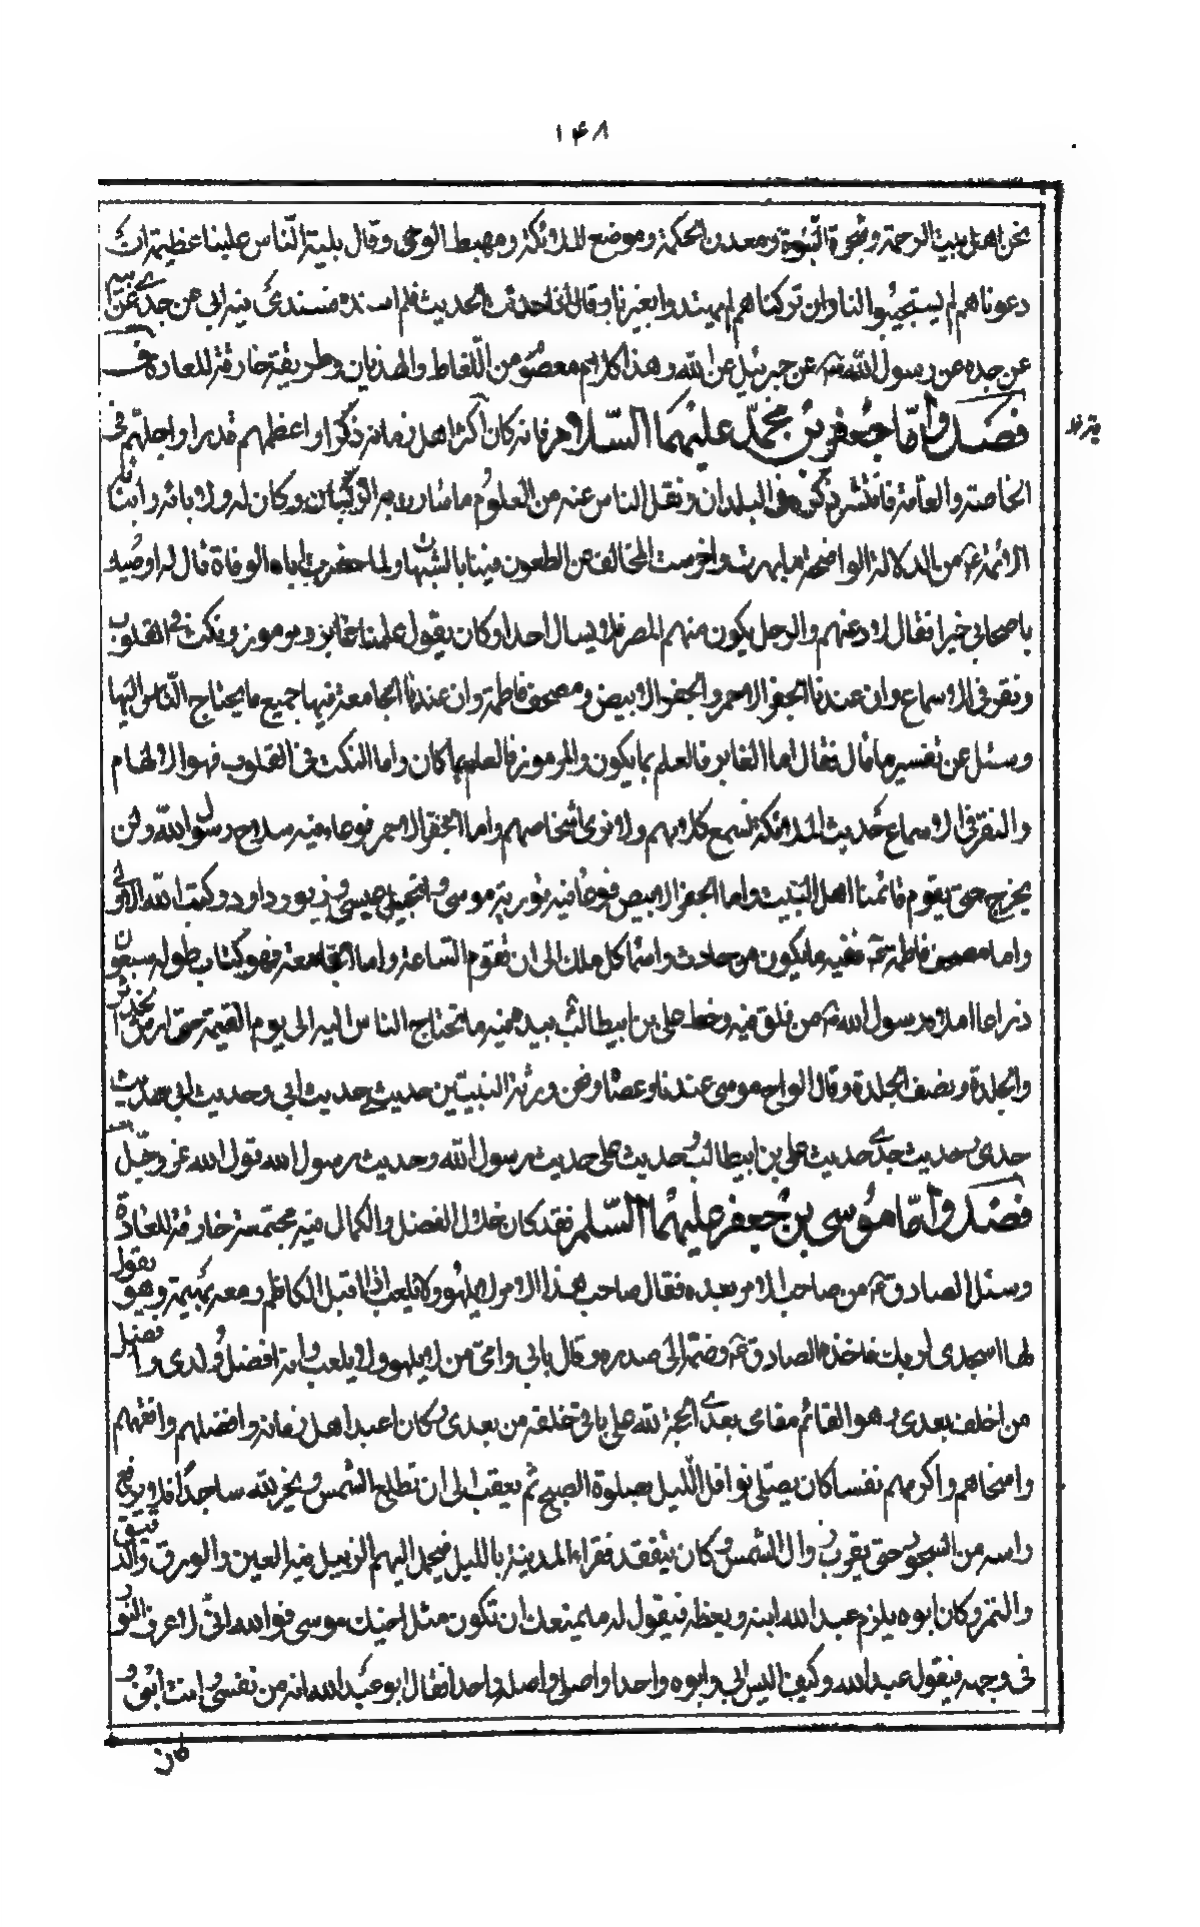 ۱۴۸
نحن اهل بيت الرحمة وشجرة النّبوة ومعدن الحكمة وموضع الملائكة ومهبط الوحى وقال بلية النّاس علينا عظيمة ان
دعوناهم لم يستجيبوا لنا وان تركناهم لم يهتدوا بغيرنا وقال اذا حدثت الحديث فلم اسنده فسندى فيه ابى عن جدى عن ابيه
عن جده عن رسول الله ص عن جبرئيل عن الله وهذا كلام معصوم من اللغاط والهذيان وطريقة خارقة للعادة
فصل وامّا جعفر بن محمّد عليهما السّلام فانه كان اكثر اهل زمانه ذكرا واعظمهم قدرا واجلهم فى
الخاصة والعامة فانتشر ذكره فى البلدان ونقل الناس عنه من العلوم ما سارت به الركبان وكان له ولابائه وابنائه
الائمة ع من الدلالة الواضحة ما بهرت واخرست المخالف عن الطعون فيها بالشبهات ولما حضرت اباه الوفاة قال له اوصيك
باصحابى خيرا فقال لادعنهم والرجل يكون منهم المصر فلا يسال احدا وكان يقول علمنا غابر ومزبور ونكت فى القلوب
ونقر فى الاسماع وان عندنا الجفر الاحمر والجفر الابيض ومصحف فاطمة وان عندنا الجامعة فيها جميع ما يحتاج النّاس اليها
وسئل عن تفسير ما قال فقال اما الغابر فالعلم بما يكون والمزبور فالعلم بما كان واما النكت فى القلوب فهو الالهام
والنقر فى الاسماع حديث الملائكة نسمع كلامهم ولا نرى اشخاصهم واما الجفر الاحمر فوعاء فيه سلاح رسول الله ولن
يخرج حتى يقوم قائمنا اهل البيت واما الجفر الابيض فوعاء فيه تورية موسى وانجيل عيسى وزبور داود وكتب الله الاولى
واما مصحف فاطمة ع ففيه ما يكون من حادث واسماء كل ملك الى ان تقوم السّاعة واما الجامعة فهو كتاب طوله سبعون
ذراعا املاه رسول الله ص من فلق فيه وخط على بن ابيطالب بيده فيه ما تحتاج الناس اليه الى يوم القيمة حتى ارش الخدش
والجلدة ونصف الجلدة وقال الواح موسى عندنا وعصا ونحن ورثة النبيين حديثى حديث ابى وحديث ابى حديث
جدى وحديث جدى حديث على بن ابيطالب وحديث على حديث رسول الله وحديث رسول الله قول الله عز وجّل
فصل وامّا موسى بن جعفر عليهما السّلم فقد كان خلال الفضل والكمال فيه مجتمعة خارقة للعادة
وسئل الصادق ع من صاحب الامر بعده فقال صاحب هذا الامر لا يلهو ولا يلعب اذا اقبل الكاظم ومعه بهيمة وهو يقول
لها اسجدى لربك فاخذه الصادق ع وضمّه الى صدره وقال بابى وامى من لا يلهو ولا يلعب وانه افضل ولدى وافضل
من اخلف بعدى وهو القائم مقامى بعدى الحجة لله على باقى خلقه من بعدى وكان اعبد اهل زمانه وافضلهم وافقههم
واسخاهم واكرمهم نفسا كان يصلى نوافل اللّيل بصلوة الصبح ثم يعقب الى ان تطلع الشمس ويخر لله ساجدا فلا يرفع
راسه من السجود حتى يقرب زوال الشمس وكان يتفقد فقراء المدينة بالليل فيحمل اليهم الزنبيل فيه العين والورق والدقيق
والتمر وكان ابوه يلزم عبد الله ابنه ويعظه فيقول له ما يمنعك ان تكون مثل اخيك موسى فو الله انى لا اعرف النور
فى وجهه فيقول عبد الله وكيف اليس ابى وابوه واحدا واصلى واصله واحدا فقال ابو عبد الله انه من نفسى وانت ابنى و
كان